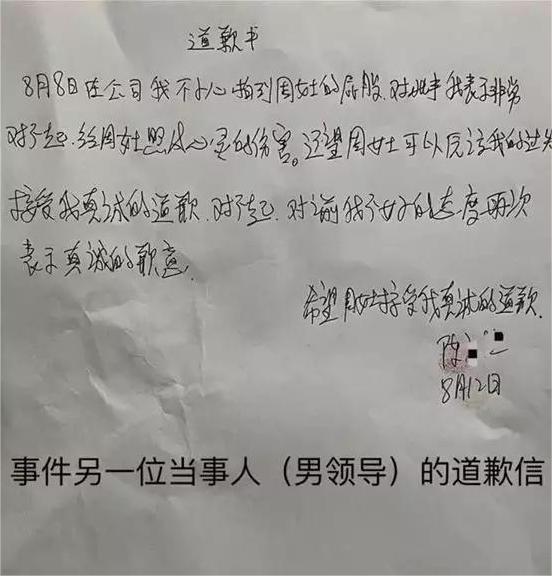 道歉书
8月8日在公司我不小心拍到周女士的屁股.对此事我表示非常
对不起.给周女士造成心灵的伤害。还望周女士可以原谅我的过失
接受我真诚的道歉.对不起.对前我不好的态度再次
表示真诚的歉意.
希望周女士接受我真诚的道歉.
陈
8月12日
事件另一位当事人（男领导）的道歉信